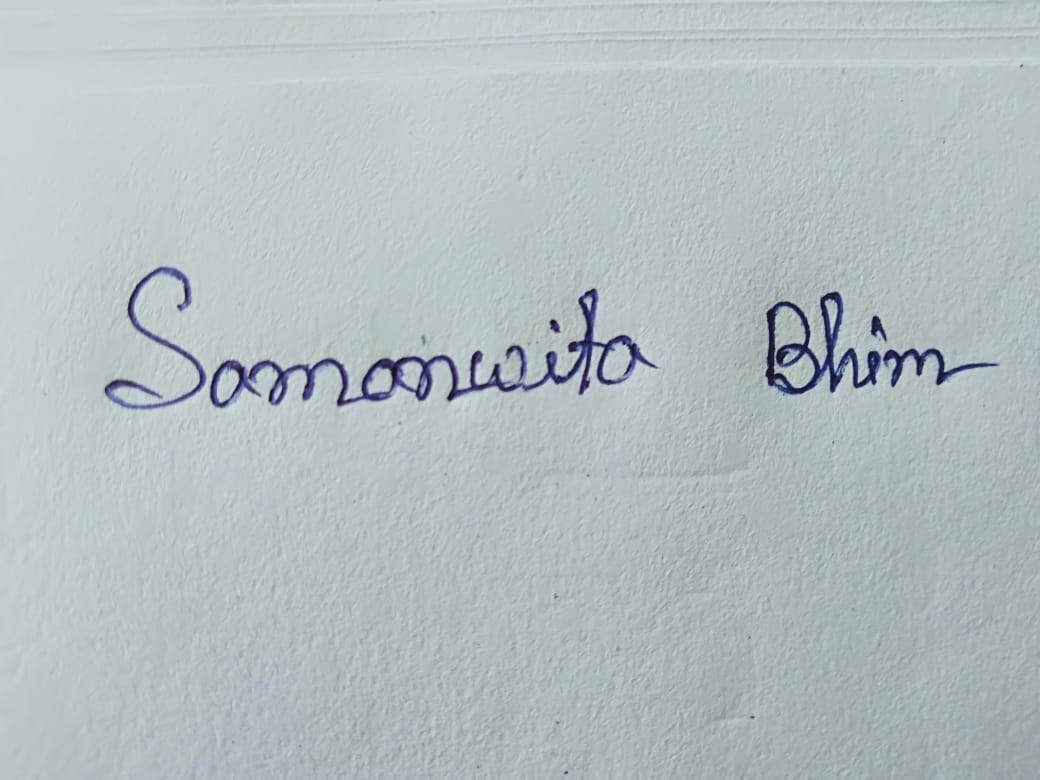 Samanwita Bhim